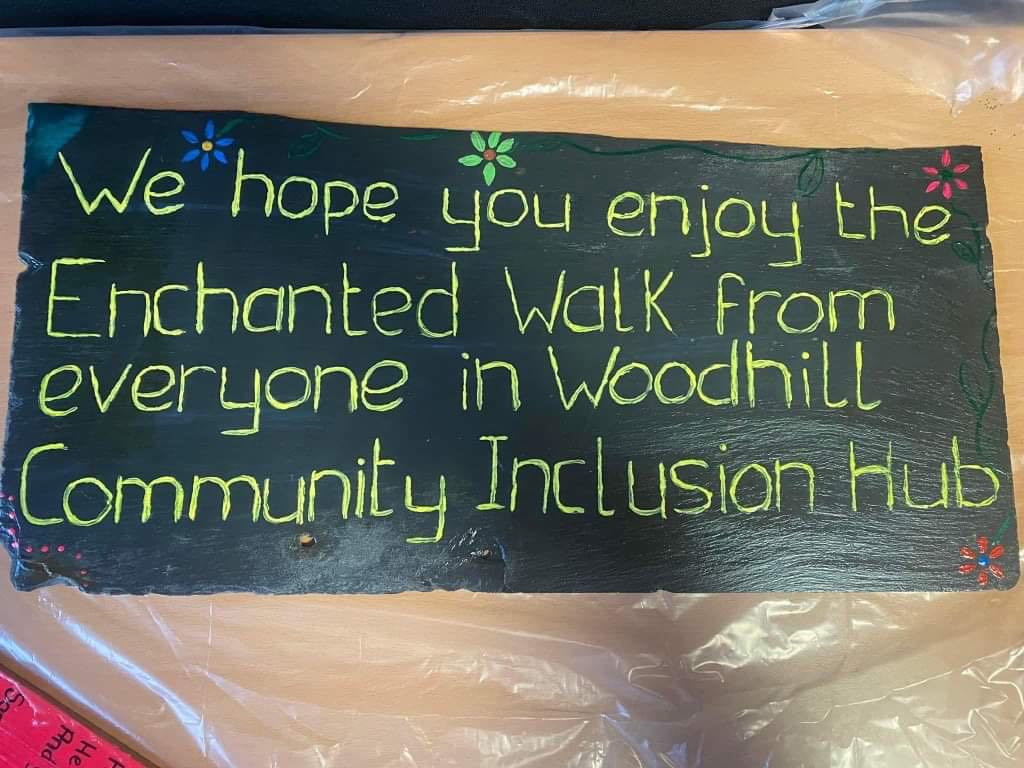 We hope you enjoy the
Enchanted Walk from
everyone in Woodhill
Community Inclusion Hub